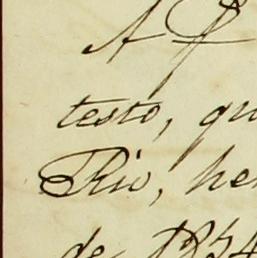 A
testo, qu
Rio, he
de 1854